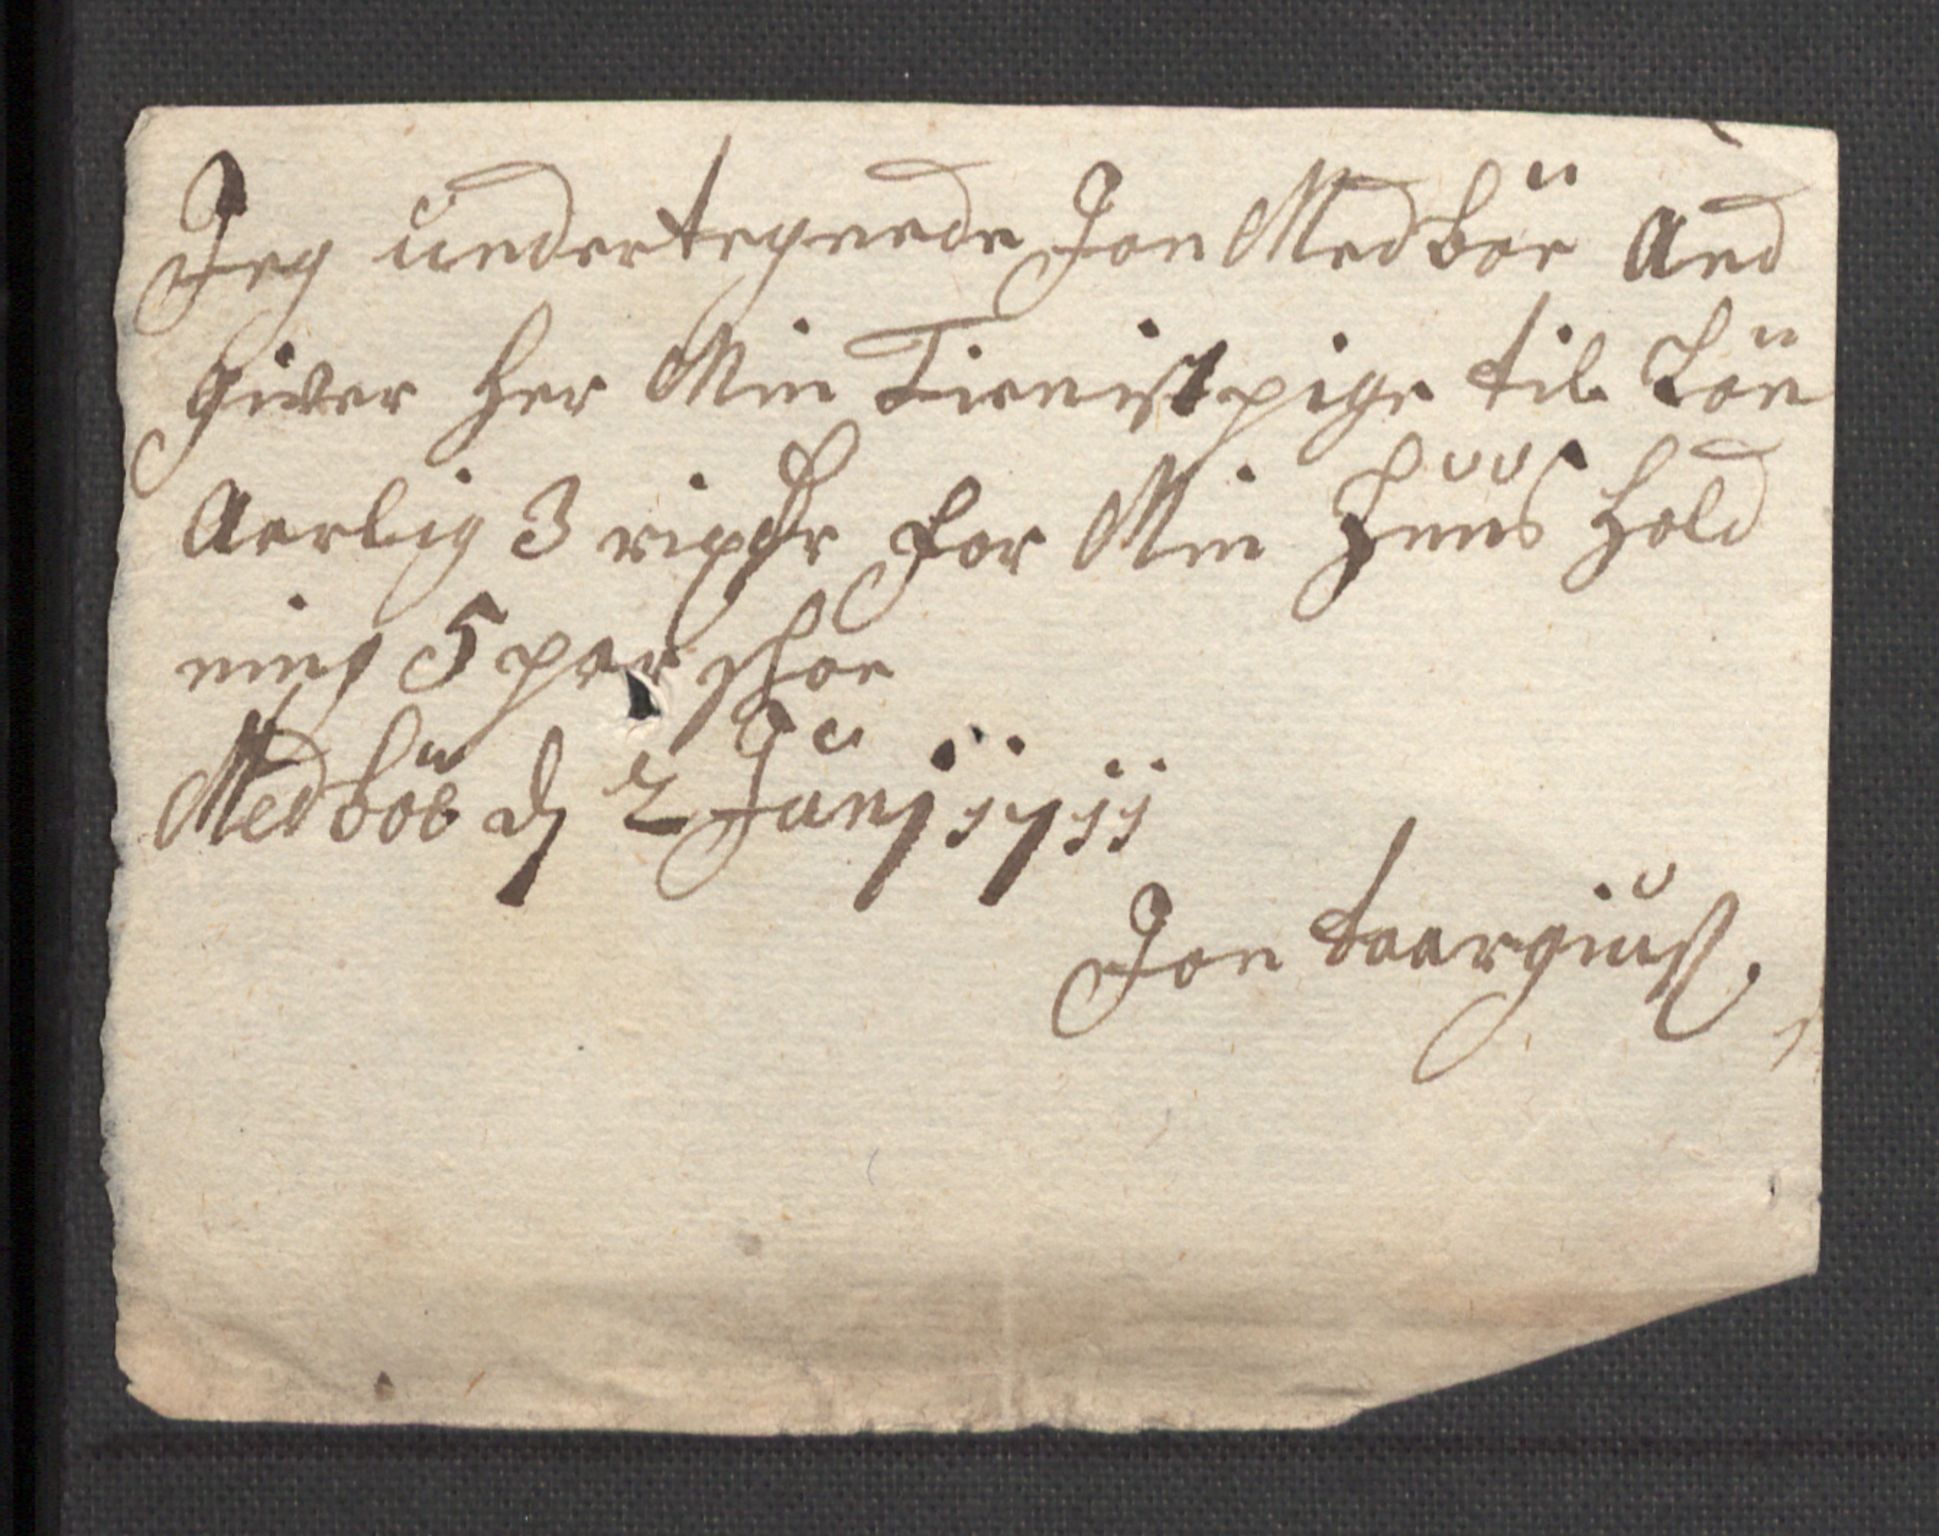 Jeg undertegnede Jon Medböe And
giver her Min Tienistpige til Lön
Aarlig 3 rixdlr for Min Huus hold
ning 5 par skoe
Medböe d 2 Junj 1711
Jon taargiuß.